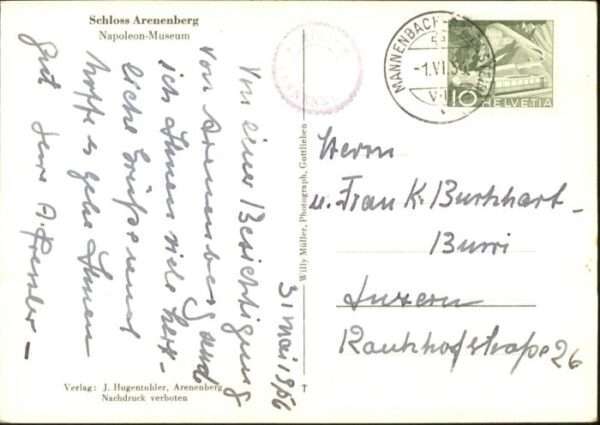 Schloss Arenenberg
Napoleon-Museum
Von einer Besichtigung
von Arenenberg sende
ich Ihnen viele herz-
liche Grüsse und
hoffe es gehe Ihnen
gut Ihre A.
31 Mai 1956
Verlag: J. Hugentobler, Arenenberg
Nachdruck verboten
T
Willy Müller, Photograph, Gottlieben
MANNENBACH
-1.VI.5
10 HELVETIA
Herrn
u. Frau K. Burkhart-
Burri
Luzern
26